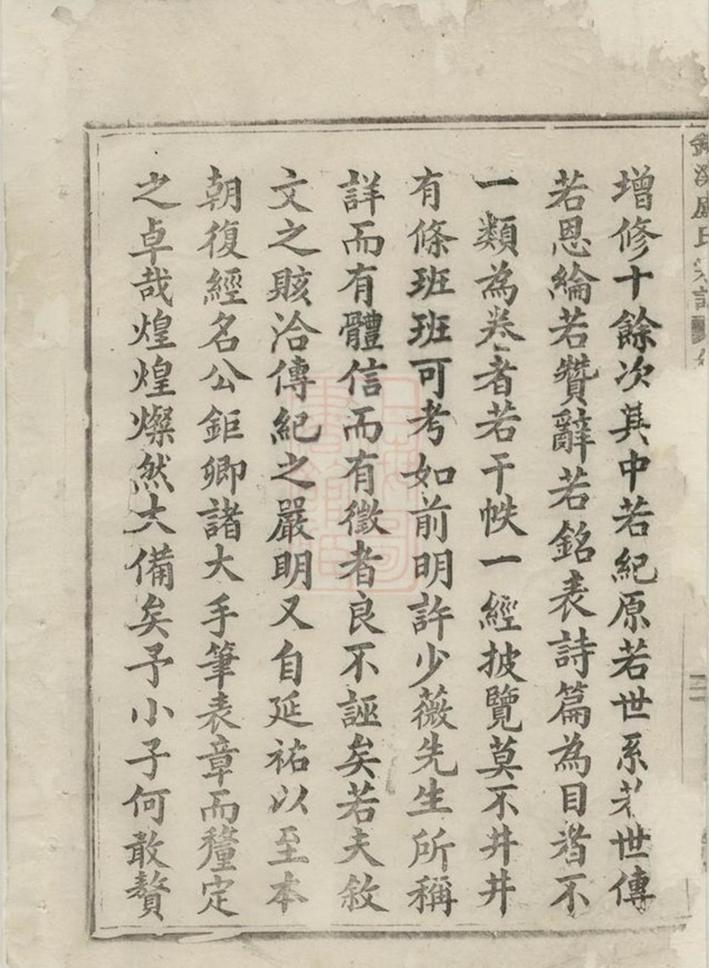 增修十餘次其中若紀原若世系若世傳
若恩綸若贊辭若銘表詩篇為目者不
一類為卷者若干帙一經披覽莫不井井
有條班班可考如前明許少薇先生所稱
詳而有體信而有徵者良不誣矣若夫敘
文之賅洽傳紀之嚴明又自延祐以至本
朝復經名公鉅卿諸大手筆表章而釐定
之卓哉煌煌燦然大備矣予小子何敢贅